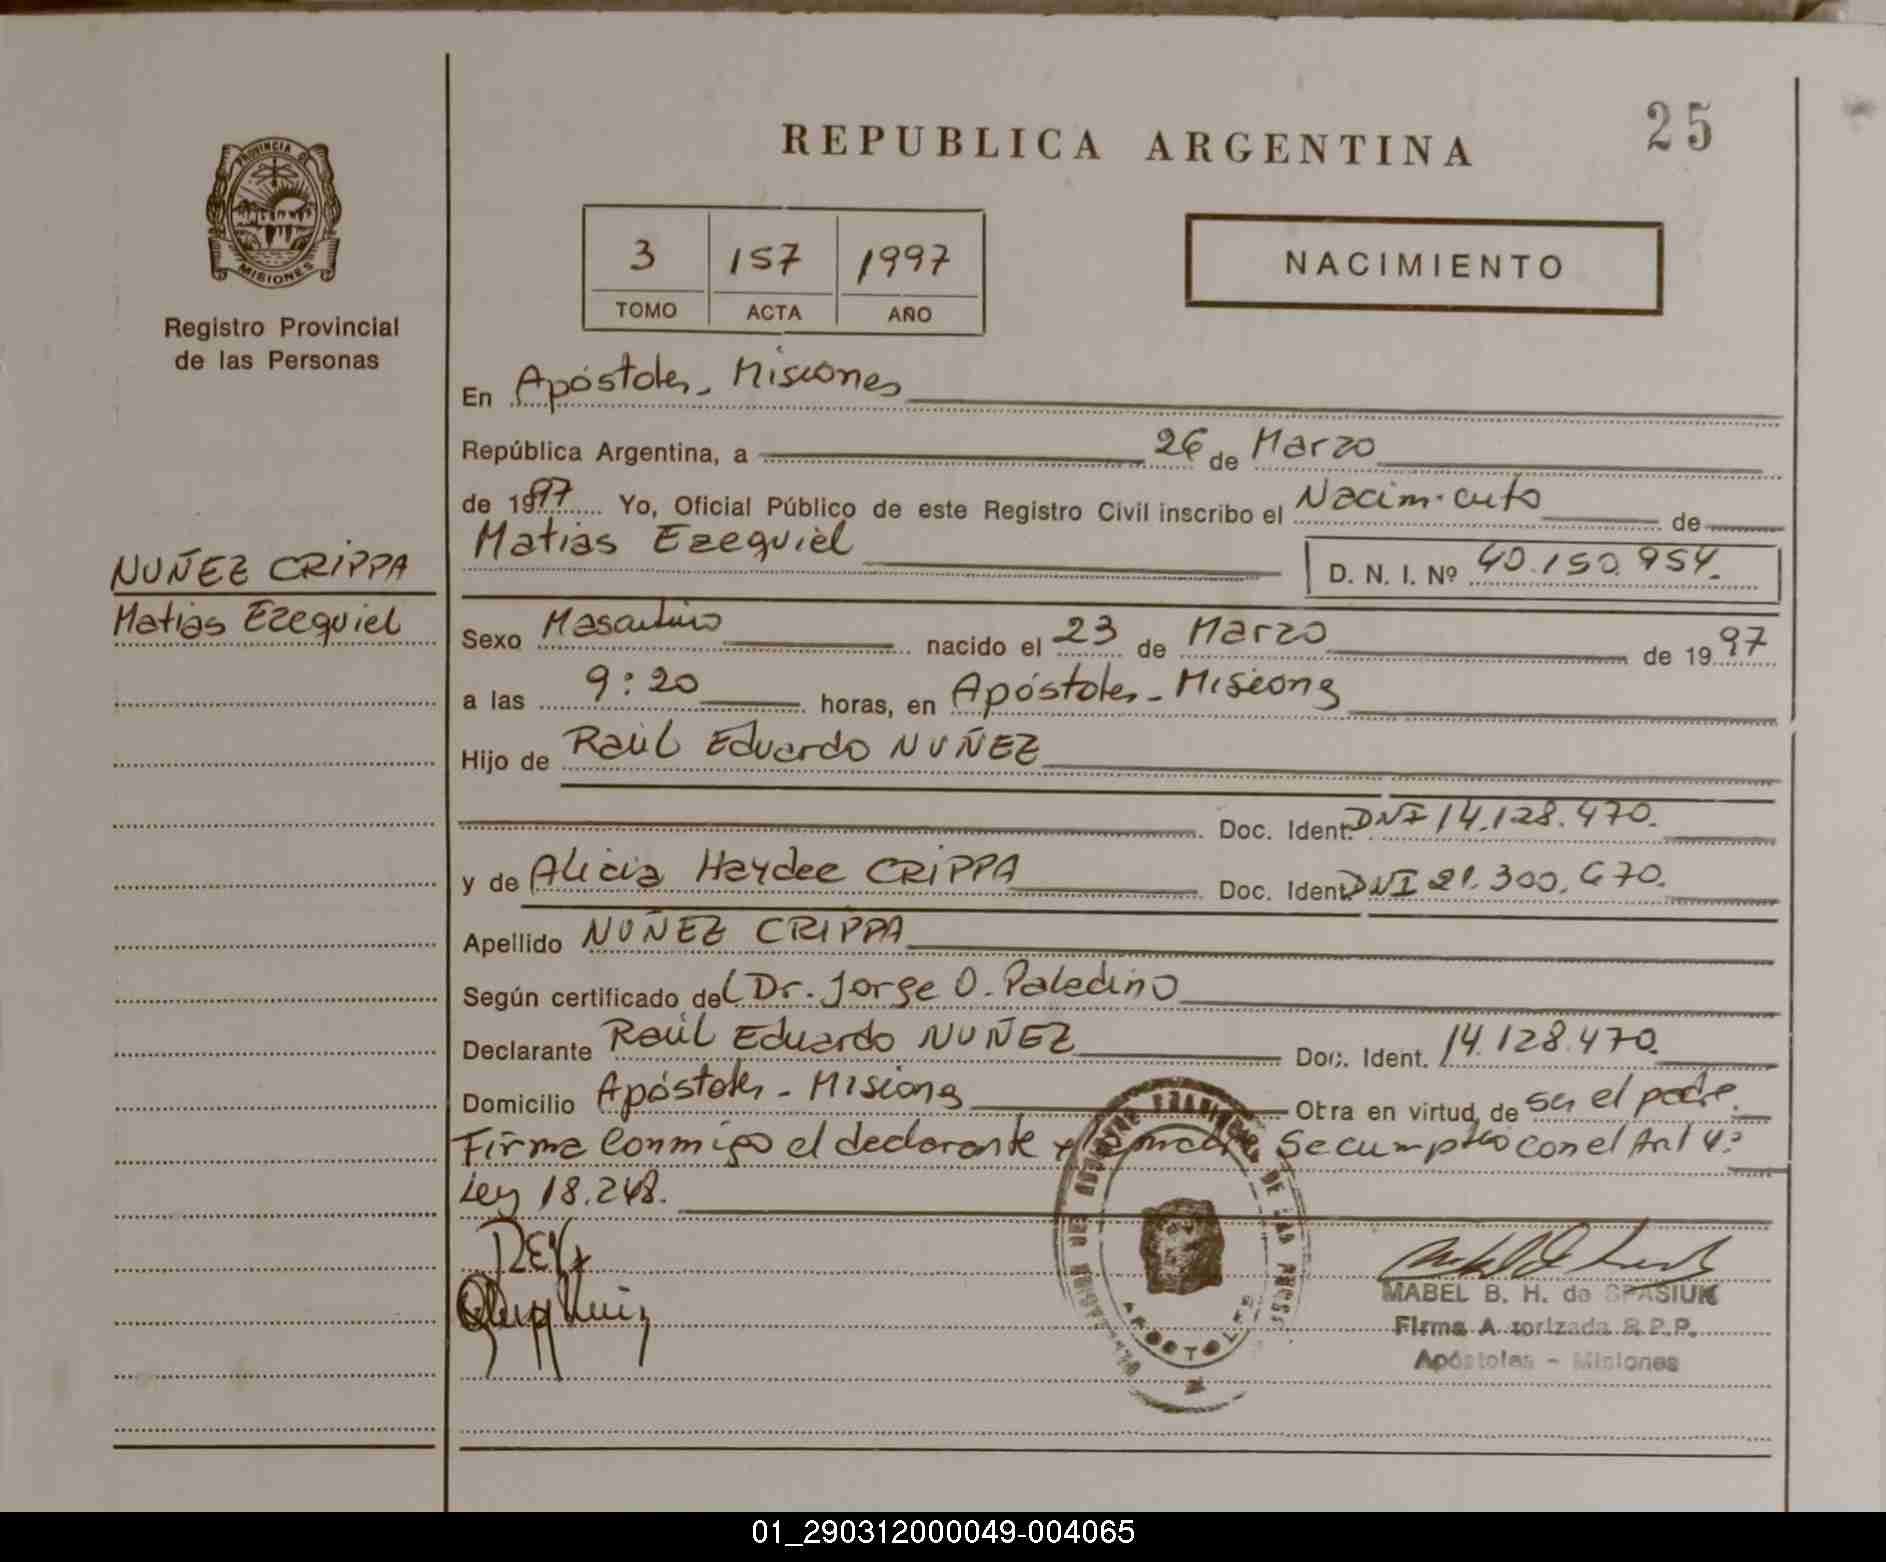 REPUBLICA ARGENTINA
25
PROVINCIA DE
MISIONES
Registro Provincial
de las Personas
3 157 1997
TOMO ACTA AÑO
NACIMIENTO
En Apóstoles - Misiones
República Argentina, a 26 de Marzo
de 1997 Yo, Oficial Público de este Registro Civil inscribo el Nacimiento de
Matias Ezequiel D. N. I. Nº 40.150.954.
NUÑEZ CRIPPA
Matias Ezequiel
Sexo Masculino nacido el 23 de Marzo de 1997
a las 9:20 horas, en Apóstoles - Misiones
Hijo de Raúl Eduardo NUÑEZ
Doc. Ident. DNI 14.128.470.
y de Alicia Haydee CRIPPA Doc. Ident. DNI 21.300.670.
Apellido NUÑEZ CRIPPA
Según certificado del Dr. Jorge O. Paladino
Declarante Raúl Eduardo NUÑEZ Doc. Ident. 14.128.470.
Domicilio Apóstoles - Misiones Obra en virtud de ser el padre.
Firma conmigo el declarante y Se cumplio con el Art 4º
Ley 18.248.
DE LAS
APOSTOLES
MABEL B. H. de SPASIUK
Firma Autorizada R.P.P.
Apóstoles - Misiones
01_290312000049-004065